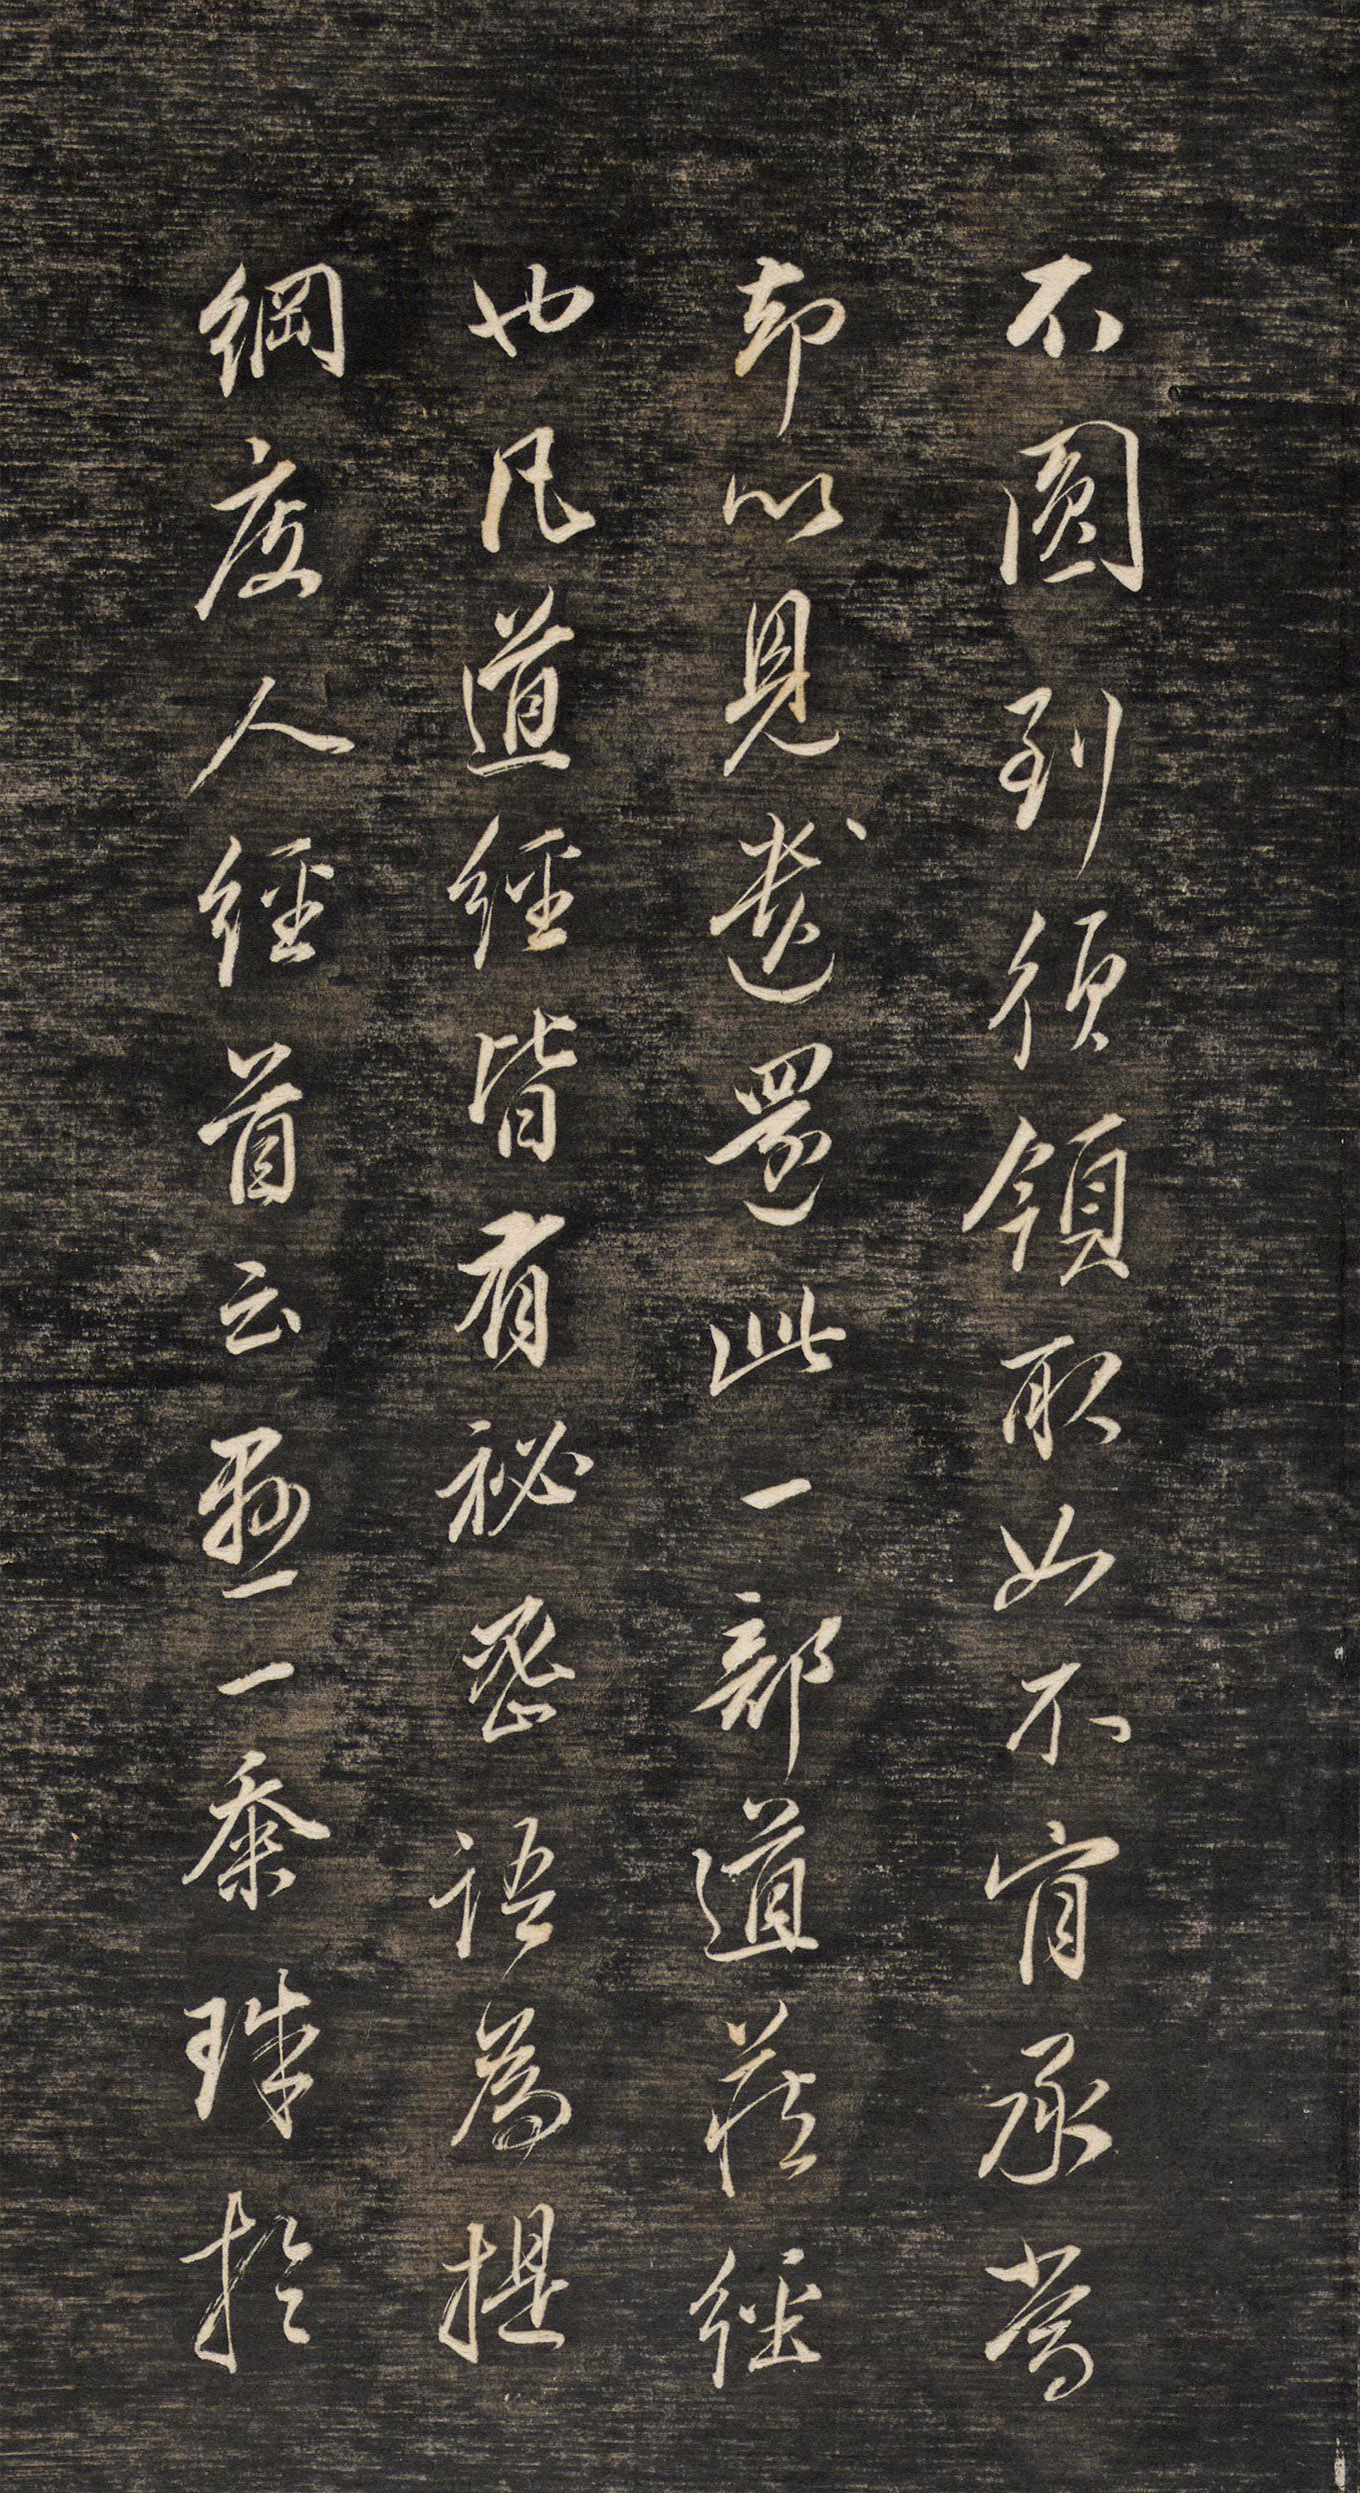 不圓到須領取如不肯承當
却以見裁還此一部道蔵經
也凡道經皆有秘密語為提
綱度人經首云懸一黍珠於